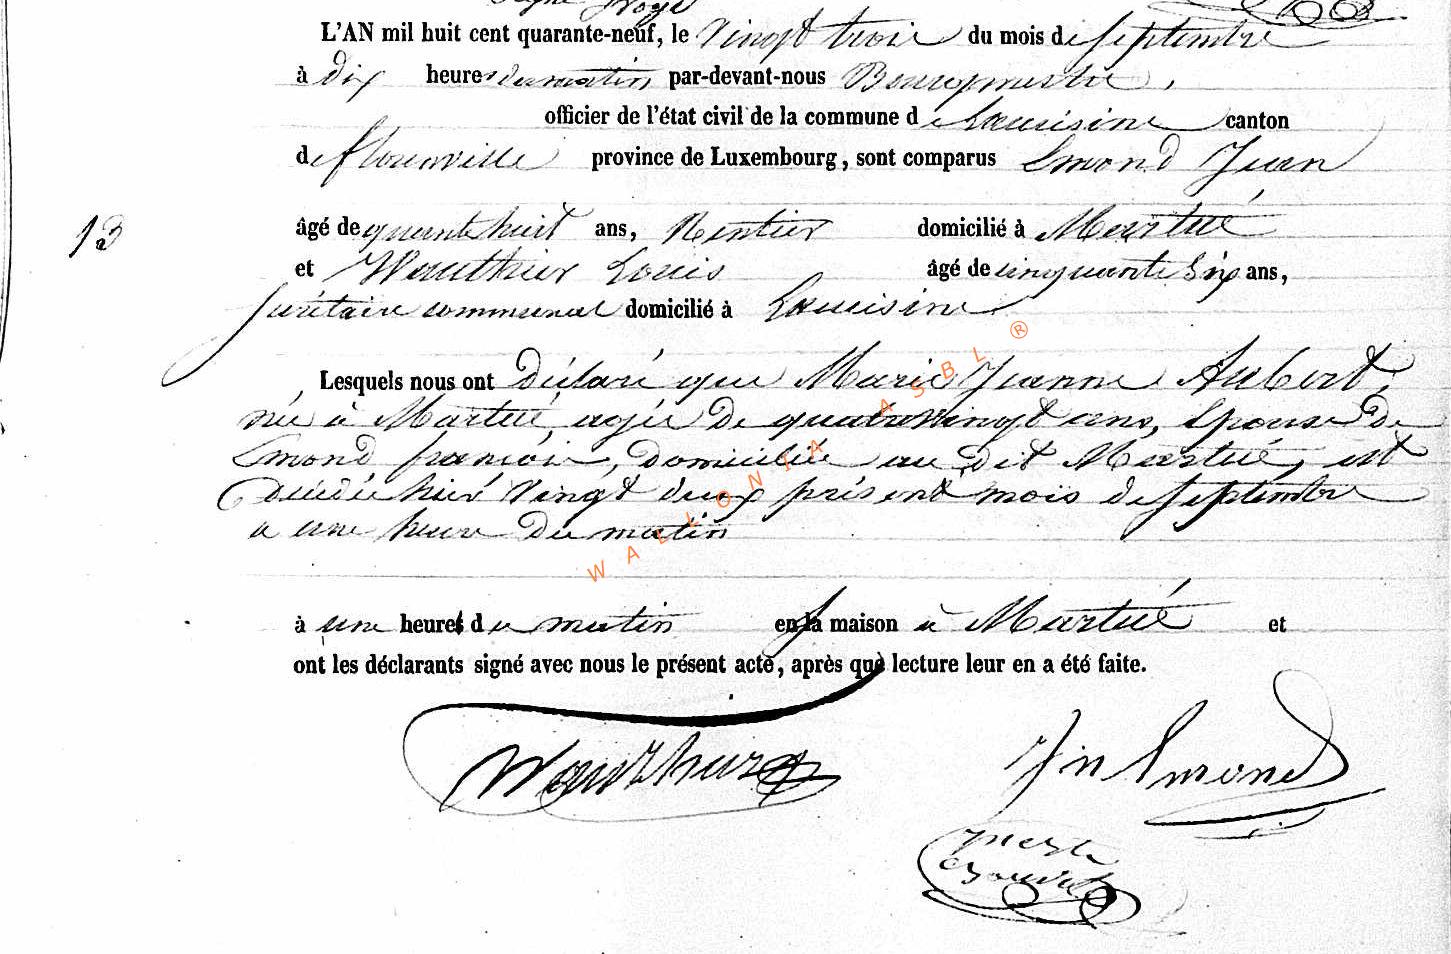 L'AN mil huit cent quarante-neuf, le vingt trois du mois de septembre
à dix heures du matin par-devant-nous Bourgmestre,
officier de l'état civil de la commune de Lacuisine canton
de florenville province de Luxembourg, sont comparus Emond Jean
13 âgé de quante huit ans, Rentier domicilié à Martué
et Wauthier Louis âgé de cinquante Six ans,
Secrétaire communal domicilié à Lacuisine
Lesquels nous ont Déclaré que Marie Jeanne Aubert,
née à Martué, agée de quatre vingt ans, Epouse de
Emond françois, domiciliée au dit Martué, est
décédée hier vingt deux présent mois de septembre
a une heure du matin
WALLONIA ASBL ®
à une heure du matin en la maison à Martué et
ont les déclarants signé avec nous le présent acte, après que lecture leur en a été faite.
Wauthier Jn Emond